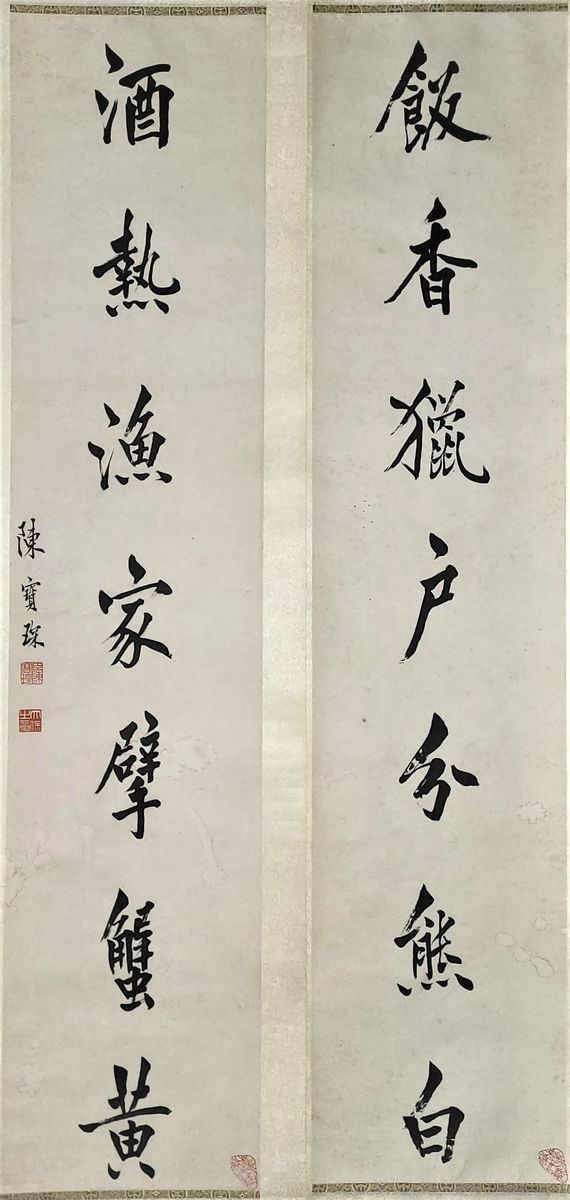 飯香獵户分熊白
酒熱漁家擘蟹黄
陳寶琛